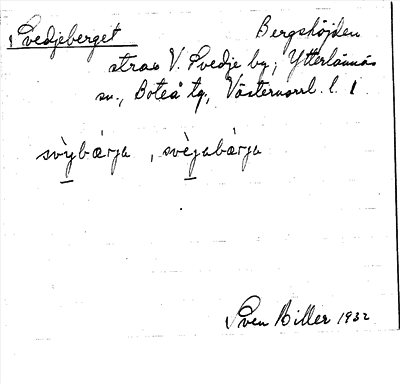 Svedjeberget Bergshöjden
strax V. Svedje by, Ytterlännäs
sn., Boteå tg, Västernorrl. l. 1.
svỳbærja, svèjabærja
Sven Hiller 1932